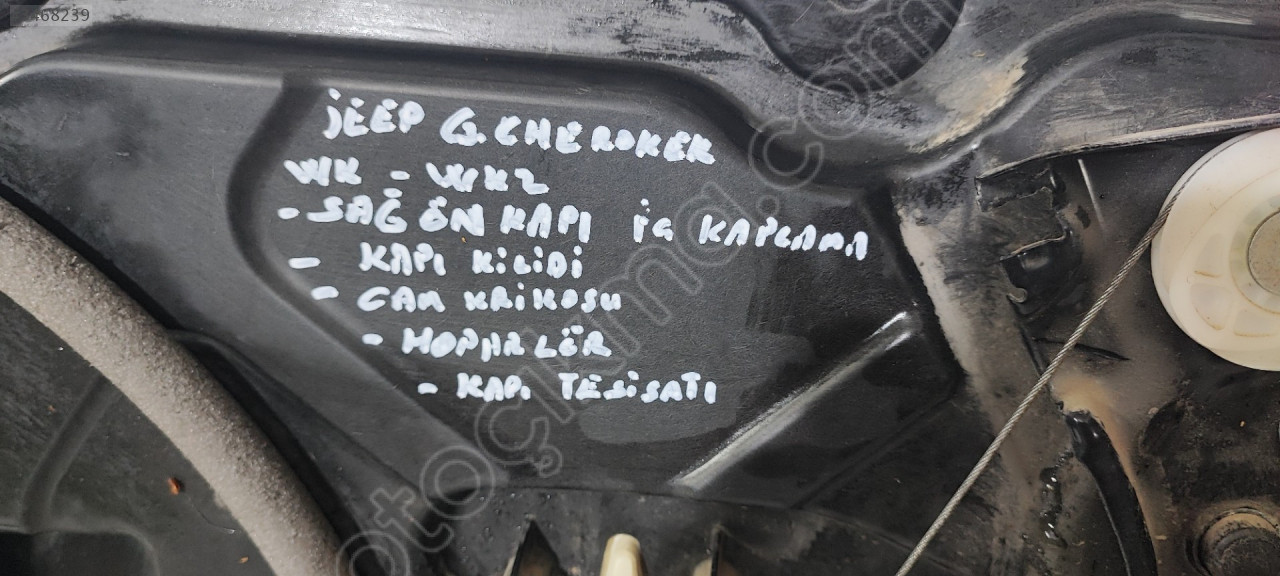 468239
JEEP G.CHEROKEE
WK - WK2
- SAĞ ÖN KAPI İÇ KAPLAMA
- KAPI KİLİDİ
- CAM KRİKOSU
- HOPARLÖR
- KAPI TESİSATI
otoçıkma.com